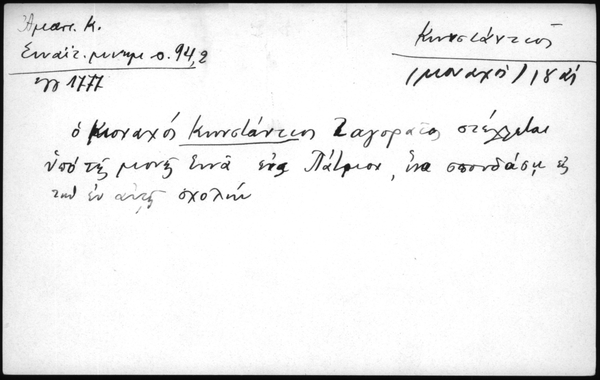 Ἄμαν. Κ.
Σιναϊτ. μνημ σ. 94,2
ἔγγ 1777
Κωνστάντιος
(μοναχός) 18 αἰ
ὁ μοναχός Κωνστάντιος Ζαγοραῖος στέλλεται
ὑπό τῆς μονῆς Σινᾶ εἰς Πάτμον, ἵνα σπουδάσῃ εἰς
τήν ἐν αὐτῇ σχολήν